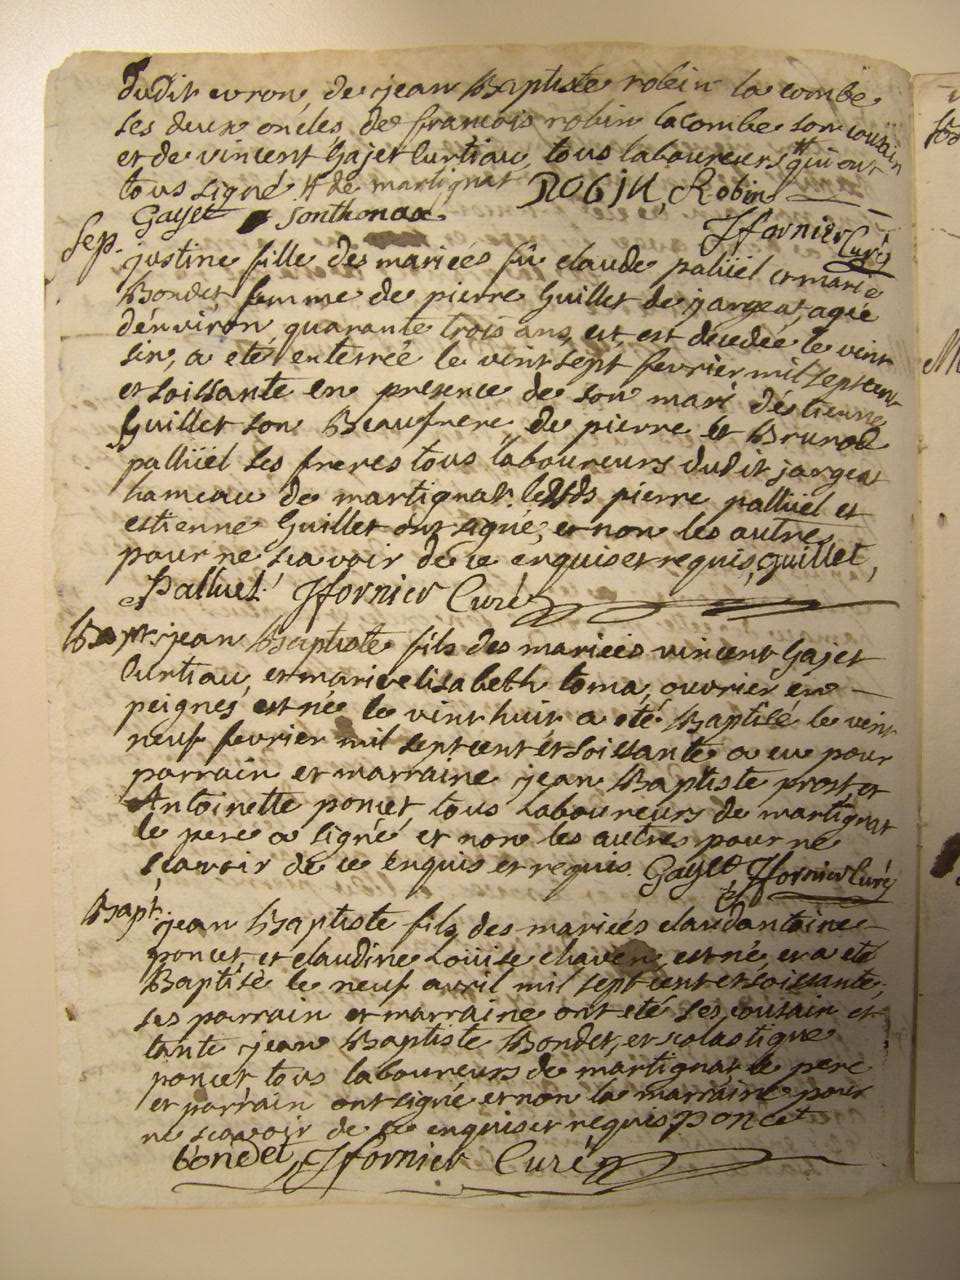 dudit evron, de jean Baptiste robin la combe
ses deux oncles de francois robin lacombe son cousin
et de vincent Gajet Curtiau, tous laboureurs # qui ont
tous signé # de martignat ROBIN, Robin
Gayet Sonthonax
JFfornier Curé
Sep. justine fille des mariés fû claude palliiel et marie
Bondet femme de pierre Guillet de jargeat, agée
d'environ quarante trois ans, est decedée le vint
six, a eté enterrée le vint sept fevrier mil sept cent
et soissante en presence de son mari d'estienne
Guillet son Beaufrere de pierre et Brunod
palliiel ses freres tous laboureurs dudit jargeat
hameau de martignat lesds pierre palliiel et
estienne Guillet ont signé, et non les autres
pour ne scavoir de ce enquis et requis, guillet,
Palluel JFfornier Curé
Bapt. jean Baptiste fils des mariés vincent Gajet
Curtiau, et marie elisabeth toma, ouvrier en
peignes est né le vint huit a eté Baptisé le vint
neuf fevrier mil sept cent et soissante a eu pour
parrain et marraine jean Baptiste prost et
Antoinette poncet, tous laboureurs de martignat
le pere a signé et non les autres pour ne
scavoir de ce enquis et requis Gayet JFfornier Curé
Bapt. jean Baptiste fils des mariés claudantoine
poncet et claudine Louise chaven est né et a eté
Baptisé le neuf avril mil sept cent et soissante,
ses parrain et marraine ont eté ses cousain et
tante jean Baptiste Bondet, et scolastique
poncet tous laboureurs de martignat le pere
et parrain ont signé et non la marraine pour
ne scavoir de ce enquis et requis poncet
bondet, JFfornier Curé